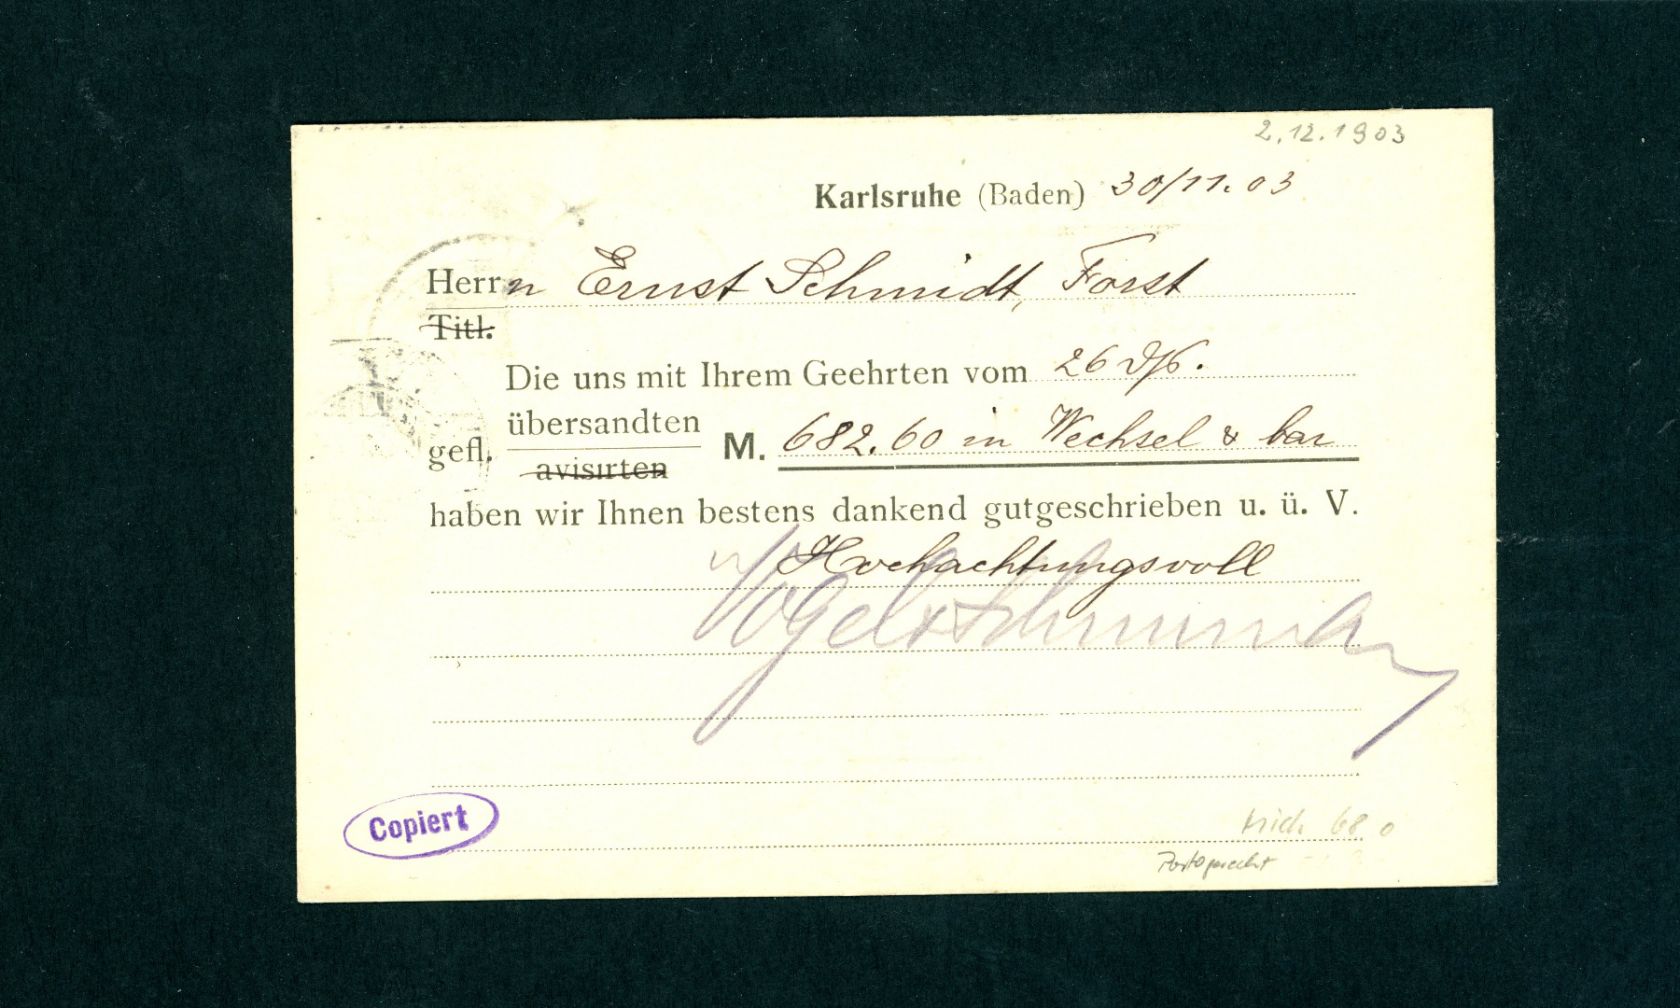 2.12.1903
Karlsruhe (Baden) 30/11.03
Herrn Ernst Schmidt, Forst
Titl.
Die uns mit Ihrem Geehrten vom 26 ds.
übersandten
gefl. M. 682.60 in Wechsel & bar
avisirten
haben wir Ihnen bestens dankend gutgeschrieben u. ü. V.
Hochachtungsvoll
Vogel &
Copiert
Mich 68
Portogerecht